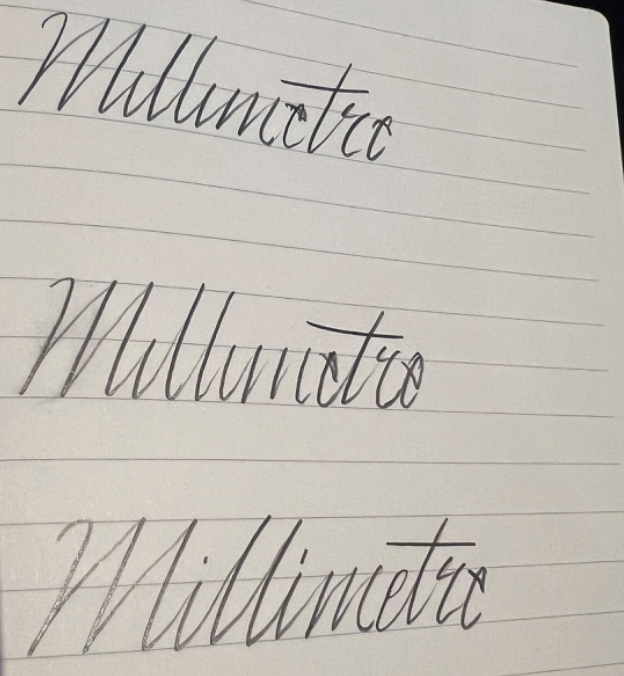 Millimetre
Millimetre
Millimetre